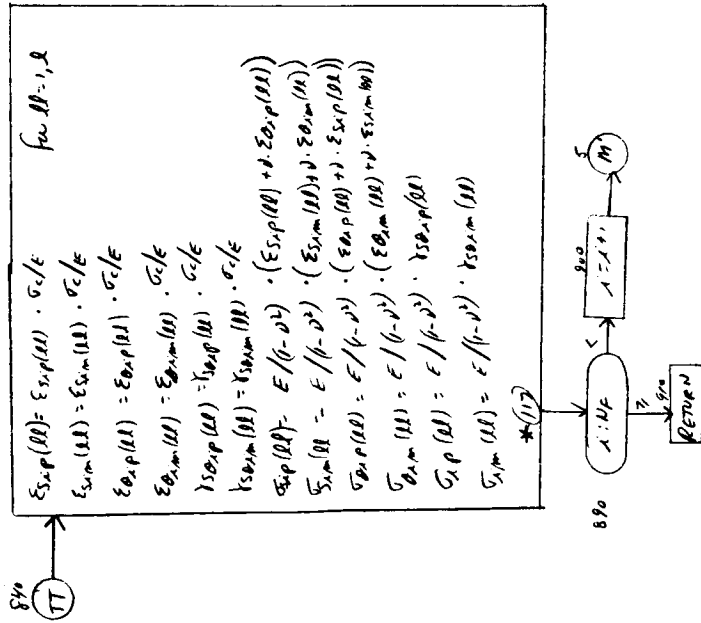 840
TT
for ll=1,l
εsip(ll) = εsip(ll) · σc/E
εsim(ll) = εsim(ll) · σc/E
εθip(ll) = εθip(ll) · σc/E
εθim(ll) = εθim(ll) · σc/E
γsθip(ll) = γsθip(ll) · σc/E
γsθim(ll) = γsθim(ll) · σc/E
σsip(ll) = E/(1-ν²) · (εsip(ll) + ν · εθip(ll))
σsim(ll = E/(1-ν²) · (εsim(ll) + ν · εθim(ll))
σθip(ll) = E/(1-ν²) · (εθip(ll) + ν · εsip(ll))
σθim(ll) = E/(1-ν²) · (εθim(ll) + ν · εsim(ll))
σip(ll) = E/(1-ν²) · γsθip(ll)
σim(ll) = E/(1-ν²) · γsθim(ll)
*(117)
890
i:NF
<
900
i=i+1
5
M'
≥
910
RETURN